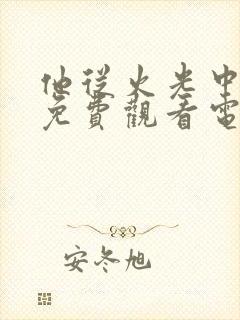 他從火光中
免費觀看電
安冬旭